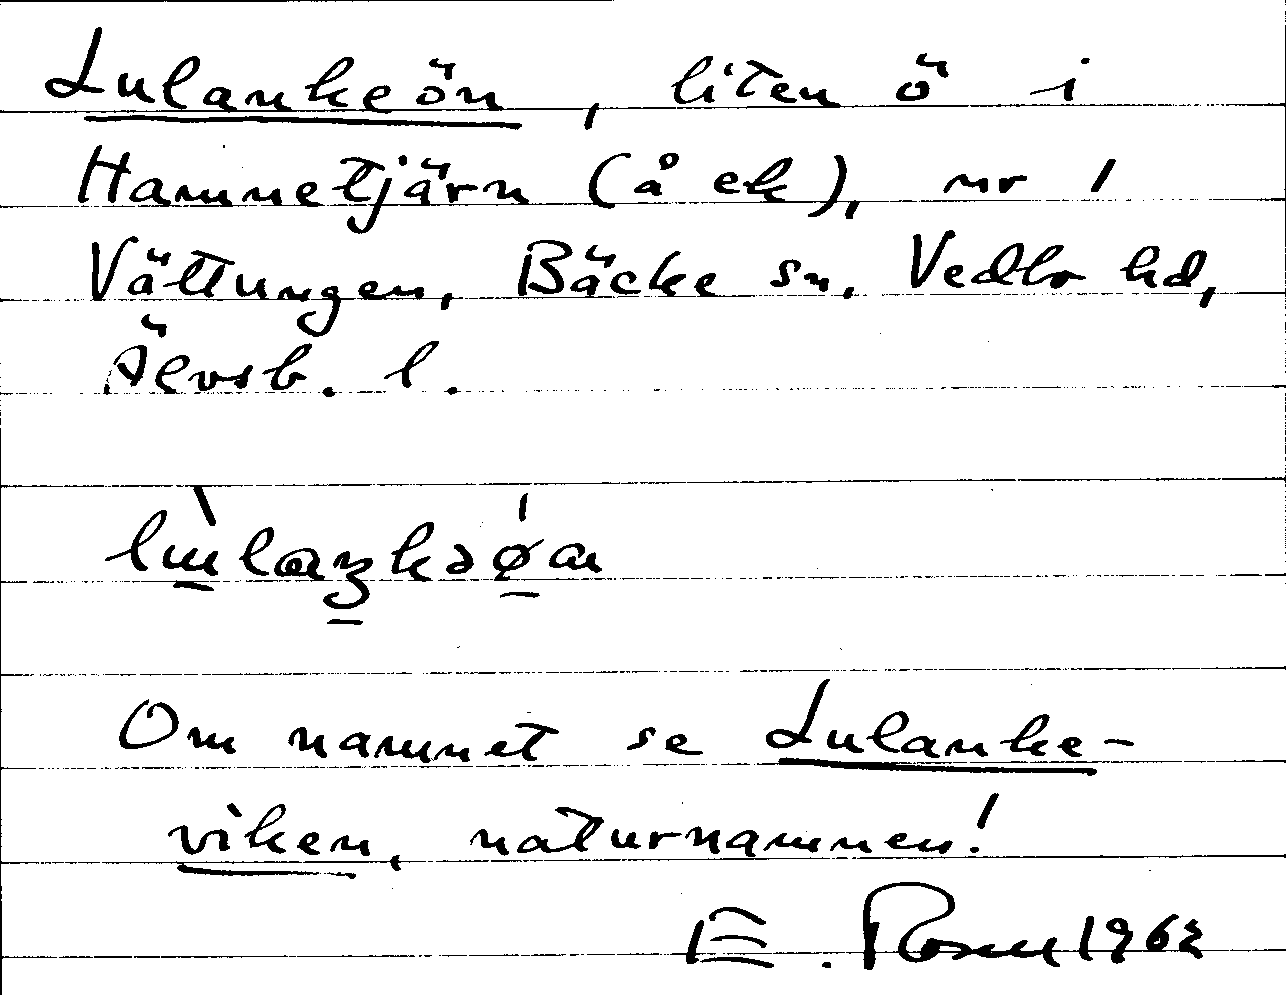 Lulankeön, liten ö i
Hamnetjärn (å ek), nr 1
Vättungen, Bäcke sn, Vedbo hd,
Älvsb. l.
Om namnet se Lulanke-
viken, naturnamnen!
E. Rosen 1962